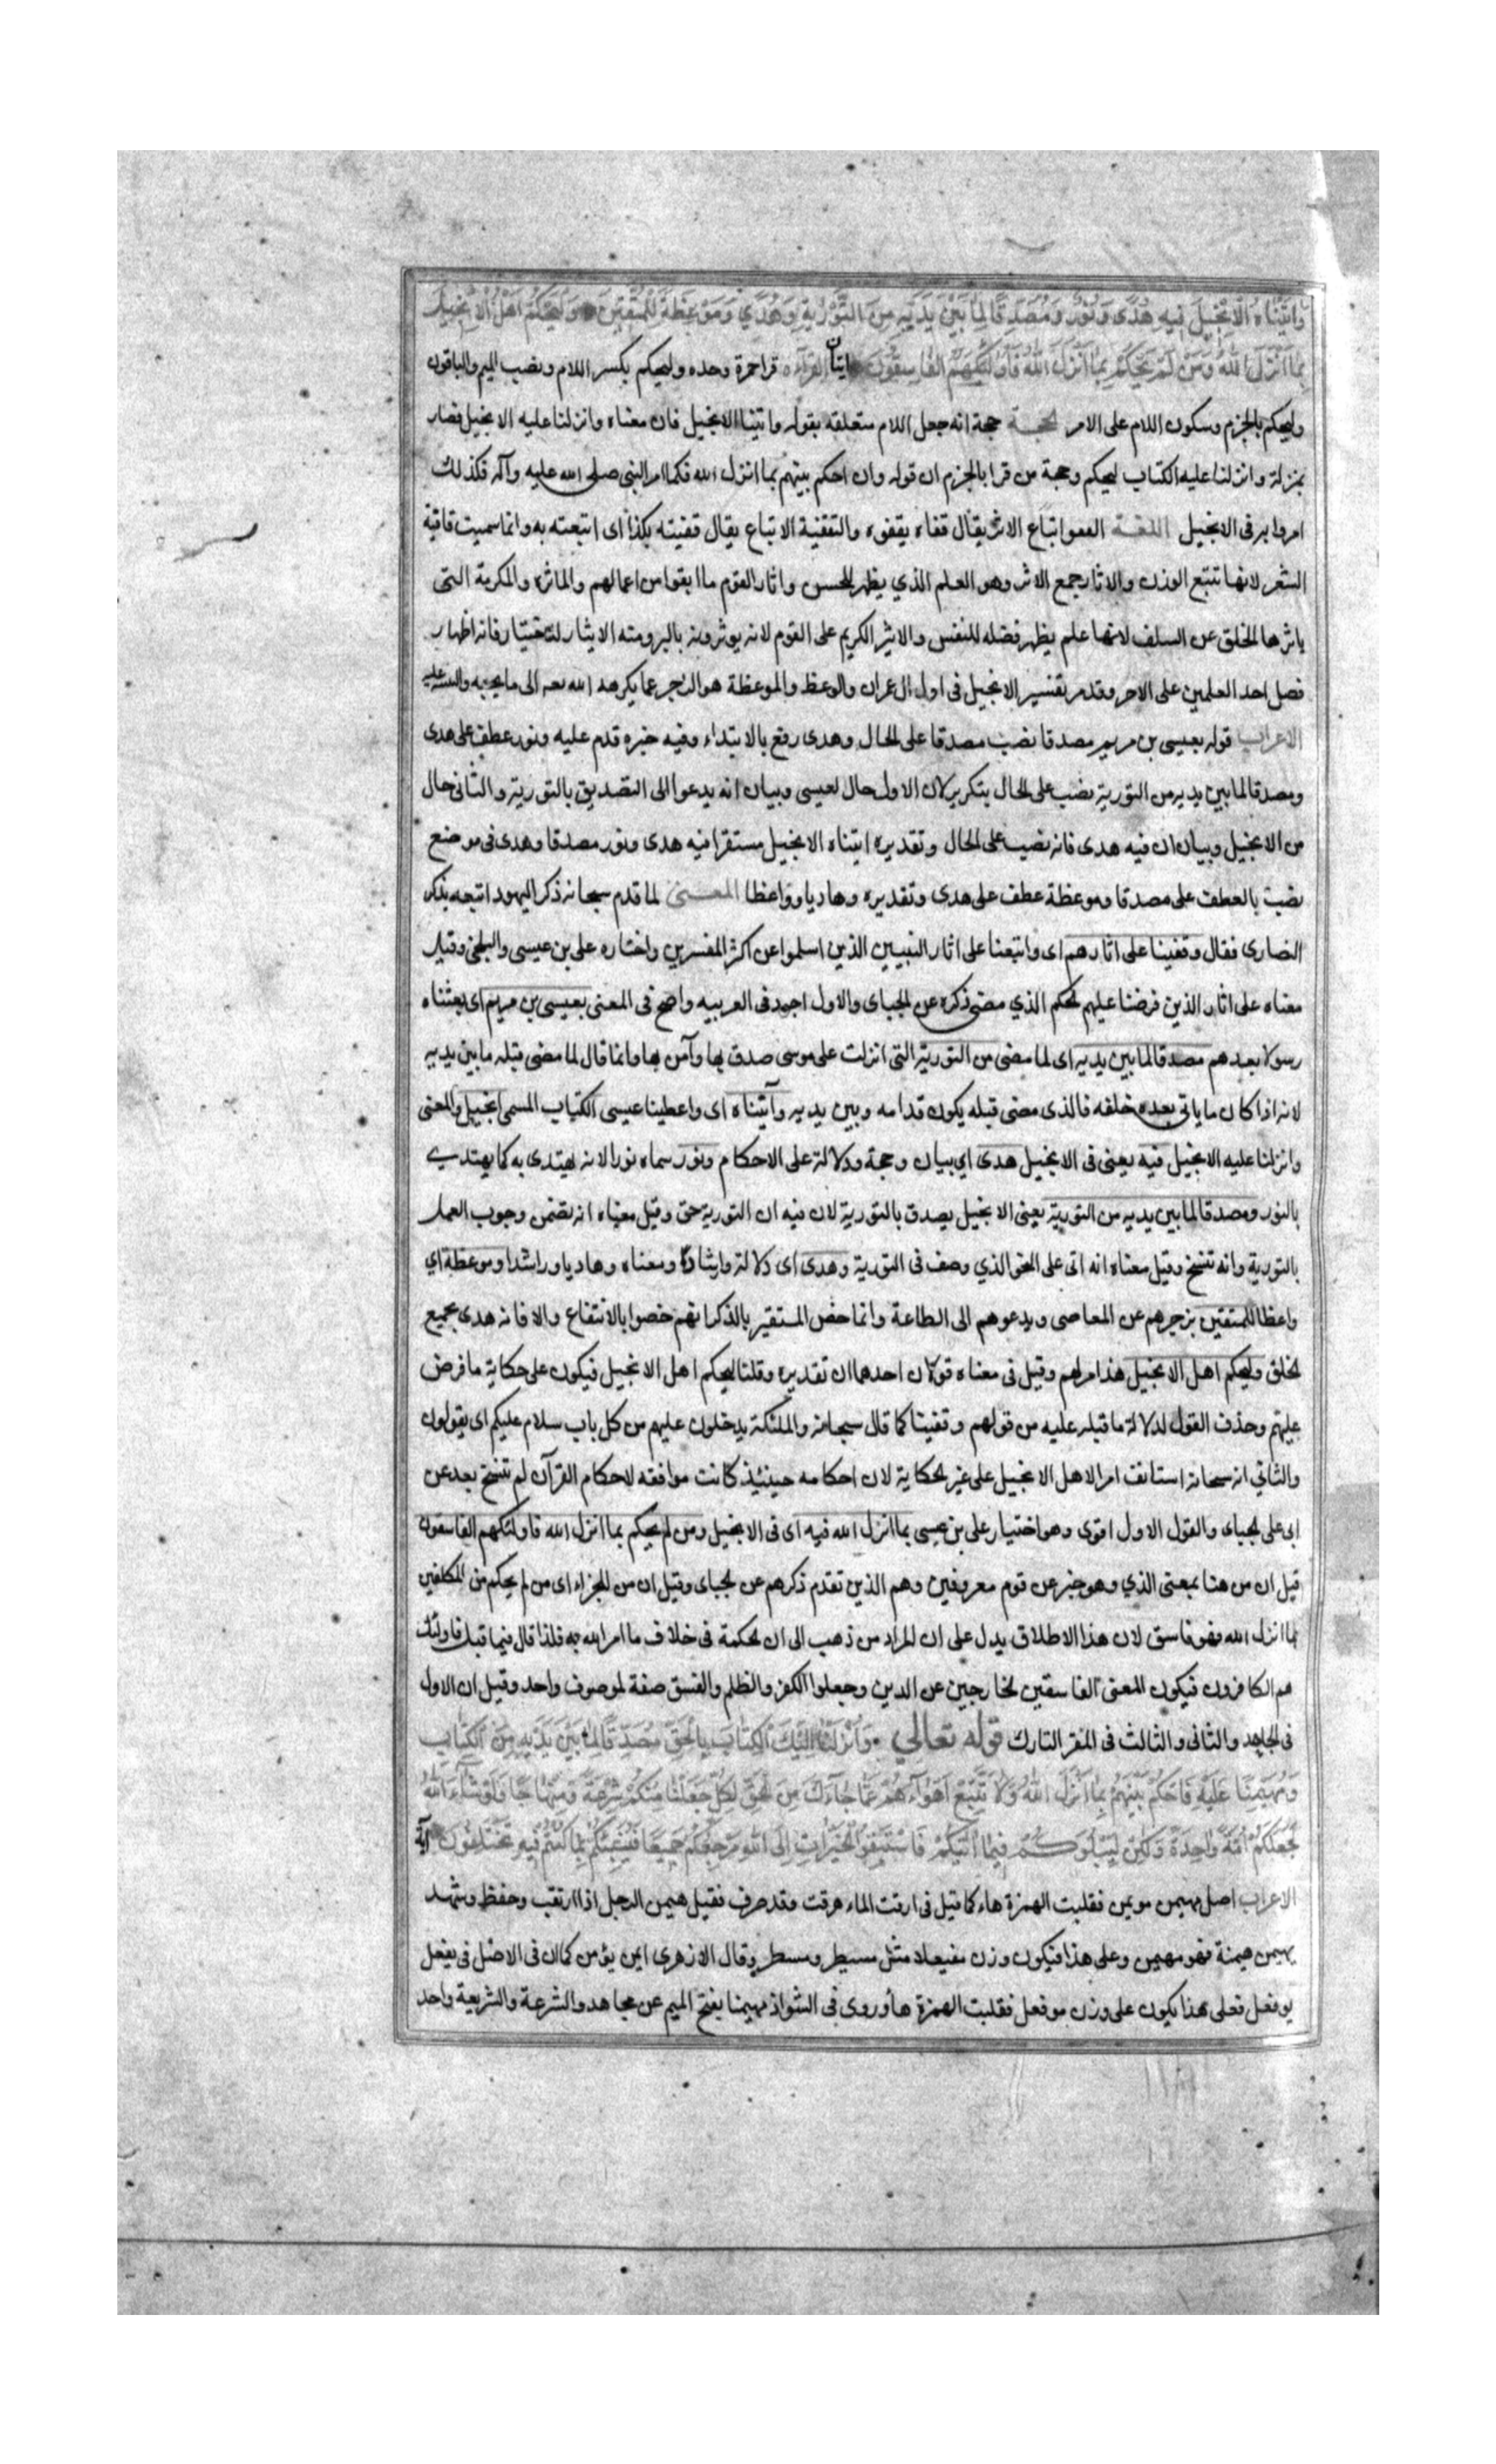 وَاتَيْنَاهُ الْاِنْجِيلَ فِيهِ هُدًى وَنُورٌ وَمُصَدِّقًا لِمَا بَيْنَ يَدَيْهِ مِنَ التَّوْرٰيةِ وَهُدًي وَمَوْعِظَةً لِلْمُتَّقِينَ وَلْيَحْكُمْ اَهْلُ الْاِنْجِيلِ
بِمَا اَنْزَلَ اللهُ وَمَنْ لَمْ يَحْكُمْ بِمَا اَنْزَلَ اللهُ فَاُولٰئِكَ هُمُ الْفَاسِقُونَ ايتان القراءه قرا حمزة وحده وليحكم بكسر اللام ونصب الميم والباقون
وليحكم بالجزم وسكون اللام على الامر الحجة حجة انه جعل اللام متعلقة بقوله واتينا الانجيل فان معناه وانزلنا عليه الانجيل فصار
بمنزلة وانزلنا عليه الكتاب ليحكم وحجة من قرا بالجزم ان قوله وان احكم بينهم بما انزل الله فكما امر النبي صلى الله عليه وآله فكذلك
امروا بر فى الانجيل اللغة القفو اتباع الاثر يقال قفاه يقفوه والتقفية الاتباع يقال قفيته بكذا اى اتبعته به وانما سميت قافية
الشعر لانها تتبع الوزن والاثار جمع الاثر وهو العلم الذي يظهر للحس واثار القوم ما ابقوا من اعمالهم والماثرة والمكرمة التى
ياثرها الخلق عن السلف لانها علم يظهر فضله للنفس والاثير الكريم على القوم لانه يوثرونه بالبر ومنه الايثار للاختيار فانه اظهار
فضل احد العلمين على الاخر وقد مر تفسير الانجيل فى اول ال عمران والوعظ والموعظة هو الزجر عما يكرهه الله الى ما يحبه والتنبيه عليه
الاعراب قوله بعيسى بن مريم مصدقا نصب مصدقا على الحال وهدى رفع بالابتداء وفيه خبره قدم عليه ونور عطف على هدى
ومصدقا لما بين يديه من التورية نصب على الحال بتكرير لان الاول حال لعيسى وبيان انه يدعوا الى التصديق بالتورية والثانى حال
من الانجيل وبيان ان فيه هدى فانه نصب على الحال وتقديره اتيناه الانجيل مستقرا فيه هدى ونور مصدقا وهدى فى موضع
نصب بالعطف على مصدقا وموعظة عطف على هدى وتقديره وهاديا وواعظا المعنى لما قدم سبحانه ذكر اليهود اتبعه بذكر
النصارى فقال وقفينا على اثارهم اى واتبعنا على اثار النبيين الذين اسلموا عن اكثر المفسرين واختاره على بن عيسى والبلخى وقيل
معناه على اثار الذين فرضنا عليهم الحكم الذي مضى ذكره عن الجباى والاول اجود فى العربيه واضح فى المعنى بعيسى بن مريم اى بعثناه
رسولا بعدهم مصدقا لما بين يديه اى لما مضى من التورية التى انزلت على موسى صدق بها وآمن بها وانما قال لما مضى قبله ما بين يديه
لانه اذا كان ما ياتى بعده خلفه فالذى مضى قبله يكون قدامه وبين يديه وآتيناه اى واعطينا عيسى الكتاب المسمى انجيل والمعنى
وانزلنا عليه الانجيل فيه يعنى فى الانجيل هدى اي بيان وحجة ودلالة على الاحكام ونور سماه نورا لانه يهتدى به كما يهتدى
بالنور ومصدقا لما بين يديه من التورية يعنى الانجيل يصدق بالتورية لان فيه ان التورية حق وقيل معناه انه تضمن وجوب العمل
بالتورية وانه تنسخ وقيل معناه انه اتى على النحو الذي وصف فى التورية وهدى اى دلالة وارشادا ومعناه وهاديا وراشدا وموعظة اي
واعظا للمتقين يزجرهم عن المعاصى ويدعوهم الى الطاعة وانما خص المتقين بالذكر لانهم خصوا بالانتفاع والا فانه هدى لجميع
الخلق وليحكم اهل الانجيل هذا امر لهم وقيل فى معناه قولان احدهما ان تقديره وقلنا ليحكم اهل الانجيل فيكون على حكاية ما فرض
عليهم وحذف القول لدلالة ما قبله عليه من قولهم وقفينا كما قال سبحانه والملئكة يدخلون عليهم من كل باب سلام عليكم اى يقولون
والثاني انه سبحانه استانف امرا لاهل الانجيل على غير الحكاية لان احكامه حينئذ كانت موافقه لاحكام القرآن لم تنسخ بعد عن
ابى على الجباى والقول الاول اقوى وهو اختيار على بن عيسى بما انزل الله فيه اى فى الانجيل ومن لم يحكم بما انزل الله فاولئك هم الفاسقون
قيل ان من هنا بمعنى الذي وهو خبر عن قوم معروفين وهم الذين تقدم ذكرهم عن الجباى وقيل ان من للجزاء اى من لم يحكم من المكلفين
بما انزل الله فهو فاسق لان هذا الاطلاق يدل على ان المراد من ذهب الى ان الحكمة فى خلاف ما امر الله به فلذا قال فيما قبل فاولئك
هم الكافرون فيكون المعنى الفاسقين الخارجين عن الدين وجعلوا الكفر والظلم والفسق صفة لموصوف واحد وقيل ان الاول
فى الجاحد والثانى والثالث فى المقر التارك قوله تعالي وَاَنْزَلْنَا اِلَيْكَ الْكِتَابَ بِالْحَقِّ مُصَدِّقًا لِمَا بَيْنَ يَدَيْهِ مِنَ الْكِتَابِ
وَمُهَيْمِنًا عَلَيْهِ فَاحْكُمْ بَيْنَهُمْ بِمَا اَنْزَلَ اللهُ وَلَا تَتَّبِعْ اَهْوَاءَهُمْ عَمَّا جَاءَكَ مِنَ الْحَقِّ لِكُلٍّ جَعَلْنَا مِنْكُمْ شِرْعَةً وَمِنْهَاجًا وَلَوْ شَاءَ اللهُ
لَجَعَلَكُمْ اُمَّةً وَاحِدَةً وَلٰكِنْ لِيَبْلُوَكُمْ فِيمَا اٰتٰيكُمْ فَاسْتَبِقُوا الْخَيْرَاتِ اِلَى اللهِ مَرْجِعُكُمْ جَمِيعًا فَيُنَبِّئُكُمْ بِمَا كُنْتُمْ فِيهِ تَخْتَلِفُونَ آية
الاعراب اصل مهيمن مويمن فقلبت الهمزة هاء كما قيل فى ارقت الماء هرقت وقد صرف فقيل هيمن الرجل اذا ارتقب وحفظ وشهد
يهيمن هيمنة فهو مهيمن وعلى هذا فيكون وزن مفيعلا مثل مسيطر ومبيطر وقال الازهرى ايمن يؤمن كما ان فى الاصل فى يفعل
يوفعل فعلى هذا يكون على وزن موفعل فقلبت الهمزة هاء وروى فى الشواذ مهيمنا بفتح الميم عن مجاهد والشرعة والشريعة واحد